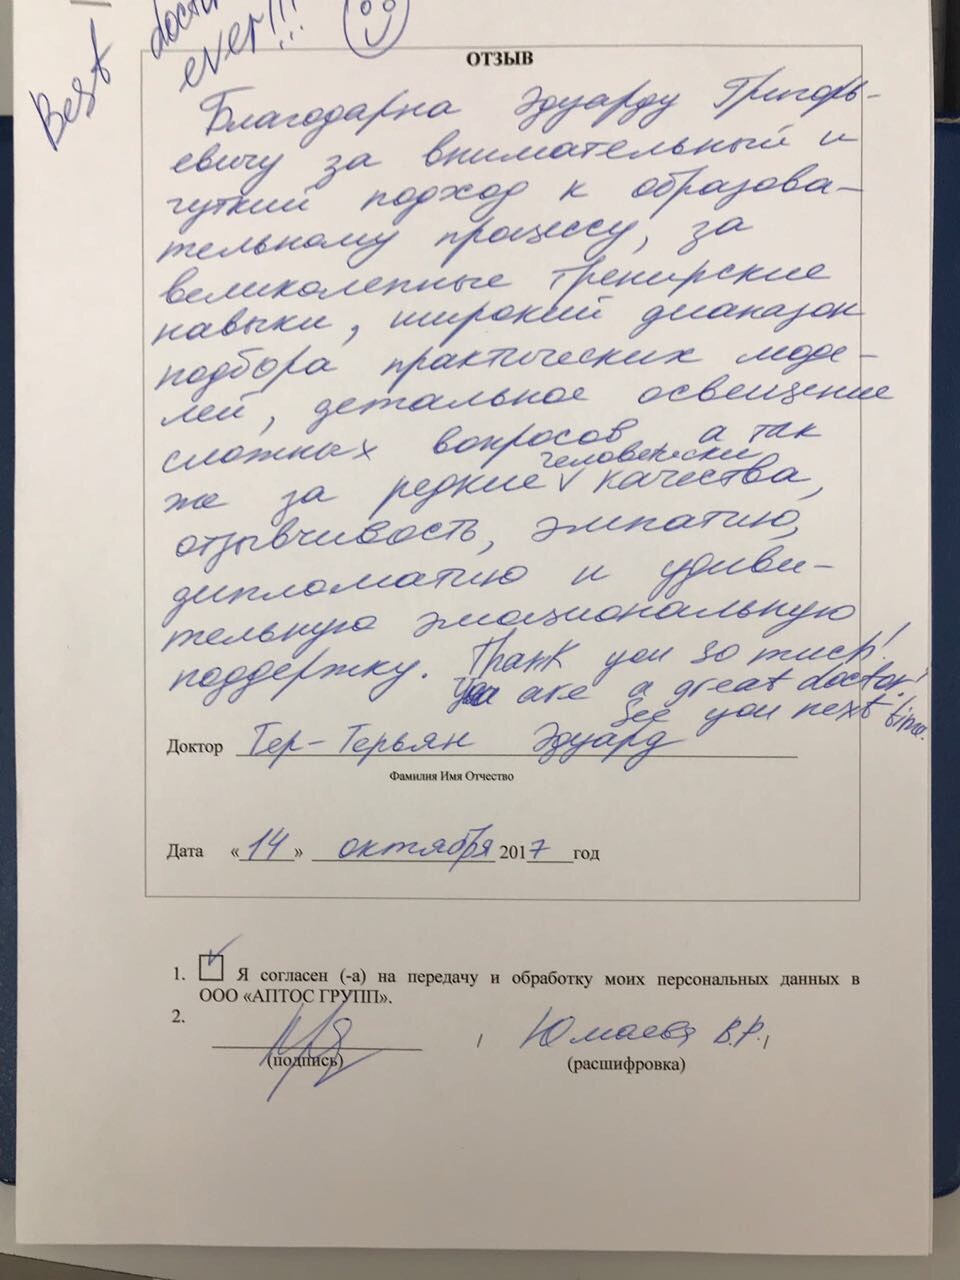 Best doctor
ever!!!
ОТЗЫВ
Благодарна Эдуарду Григорь-
евичу за внимательный и
чуткий подход к образова-
тельному процессу, за
великолепные тренирские
навыки, широкий диапазон
подбора практических моде-
лей, детальное освещение
сложных вопросов, а так
же за редкие человечески качества,
отзывчивость, эмпатию,
дипломатию и удиви-
тельную эмоциональную
поддержку. Thank you so much!
You are a great doctor!
See you next time.
Доктор Тер-Терьян Эдуард
Фамилия Имя Отчество
Дата «14» октября 2017 год
1. Я согласен (-а) на передачу и обработку моих персональных данных в
ООО «АПТОС ГРУПП».
2.
Юмаева В.Р.
(подпись) (расшифровка)